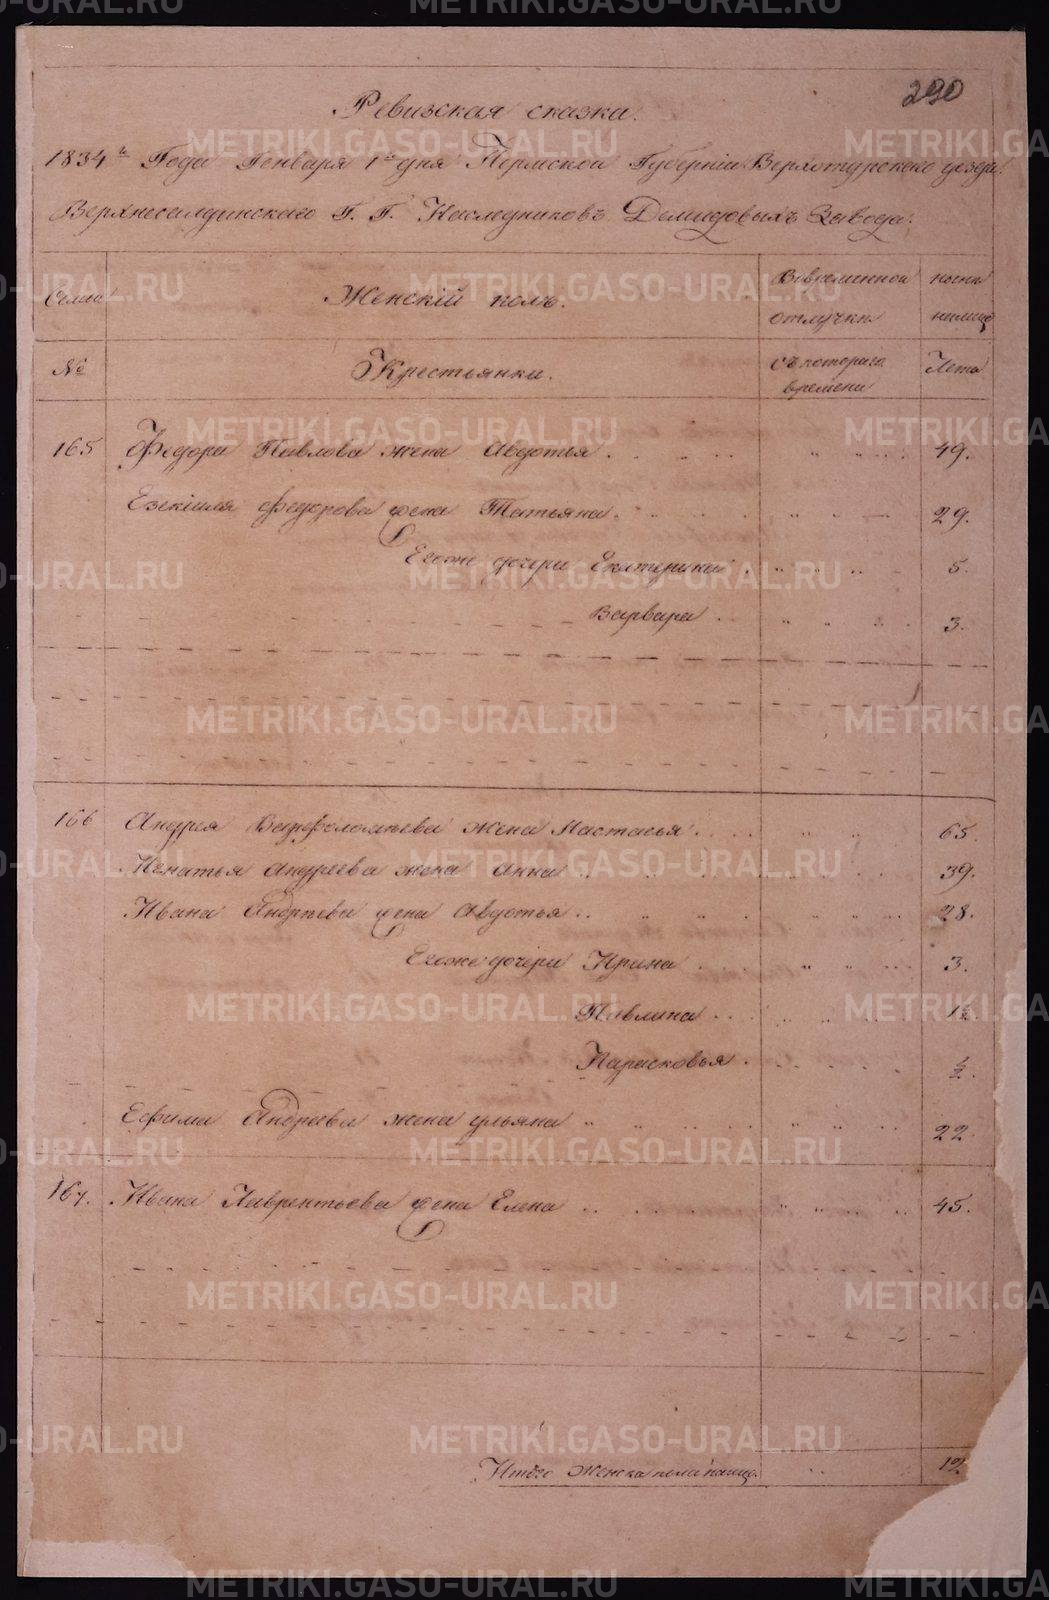 290
Ревизская сказка.
1834го Года Генваря 1го дня Пермской Губерніи Верхотурскаго уезда.
Верхнесалдинскаго Г. Г. Наследниковъ Демидовыхъ Завода.
Семьи Женскій полъ. Вовременной отлучки ныне налицо
№ Крестьянки. съ котораго времени Лета
165 Федора Павлова жена Авдотья 49.
Езекіиля Федорова жена Татьяна 29.
Егоже дочери Екатерина 5.
Варвара 3.
166 Андрея Варфоломеева жена Настасья 65.
Игнатья Андреева жена Анна 39.
Ивана Андреева жена Авдотья 28.
Егоже дочери Ирина 3.
Павлина 1½.
Парасковья ½.
Ефима Андреева жена Ульяна 22.
167. Ивана Лаврентьева жена Елена 45.
Итого женска пола налицо. 12
METRIKI.GASO-URAL.RU